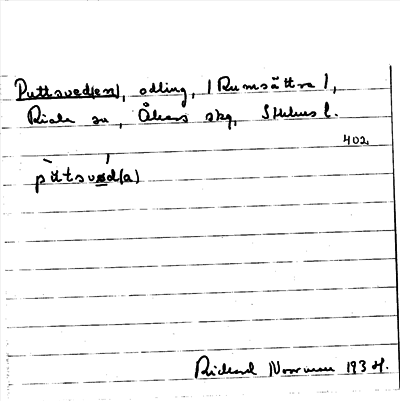 Puttsved(en), odling, (Rumsättra),
Riala sn, Åkers skg, Sthlms l.
402
pùtsvéd(a)
Rickard Norrman 1934.